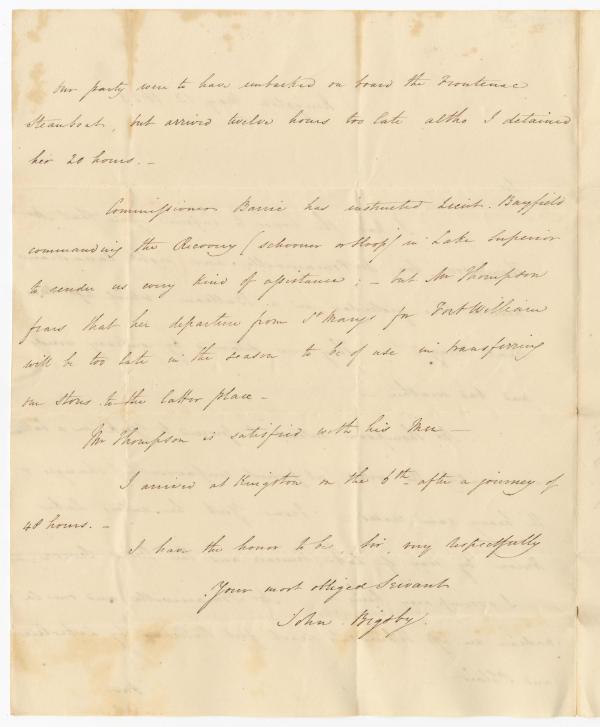 Our party were to have embarked on board the Frontenac
Steamboat, but arrived twelve hours too late altho I detained
her 20 hours. —
Commissioner Barrie has instructed Lieut. Bayfield
commanding the Recovery (schooner or sloop) in Lake Superior
to render us every kind of assistance; — but Mr Thompson
fears that her departure from St Marys for Fort William
will be too late in the season to be of use in transferring
our stores to the latter place —
Mr Thompson is satisfied with his Men —
I arrived at Kingston on the 6th after a journey of
48 hours. —
I have the honor to be, Sir, very respectfully
Your most obliged Servant
John Bigsby.